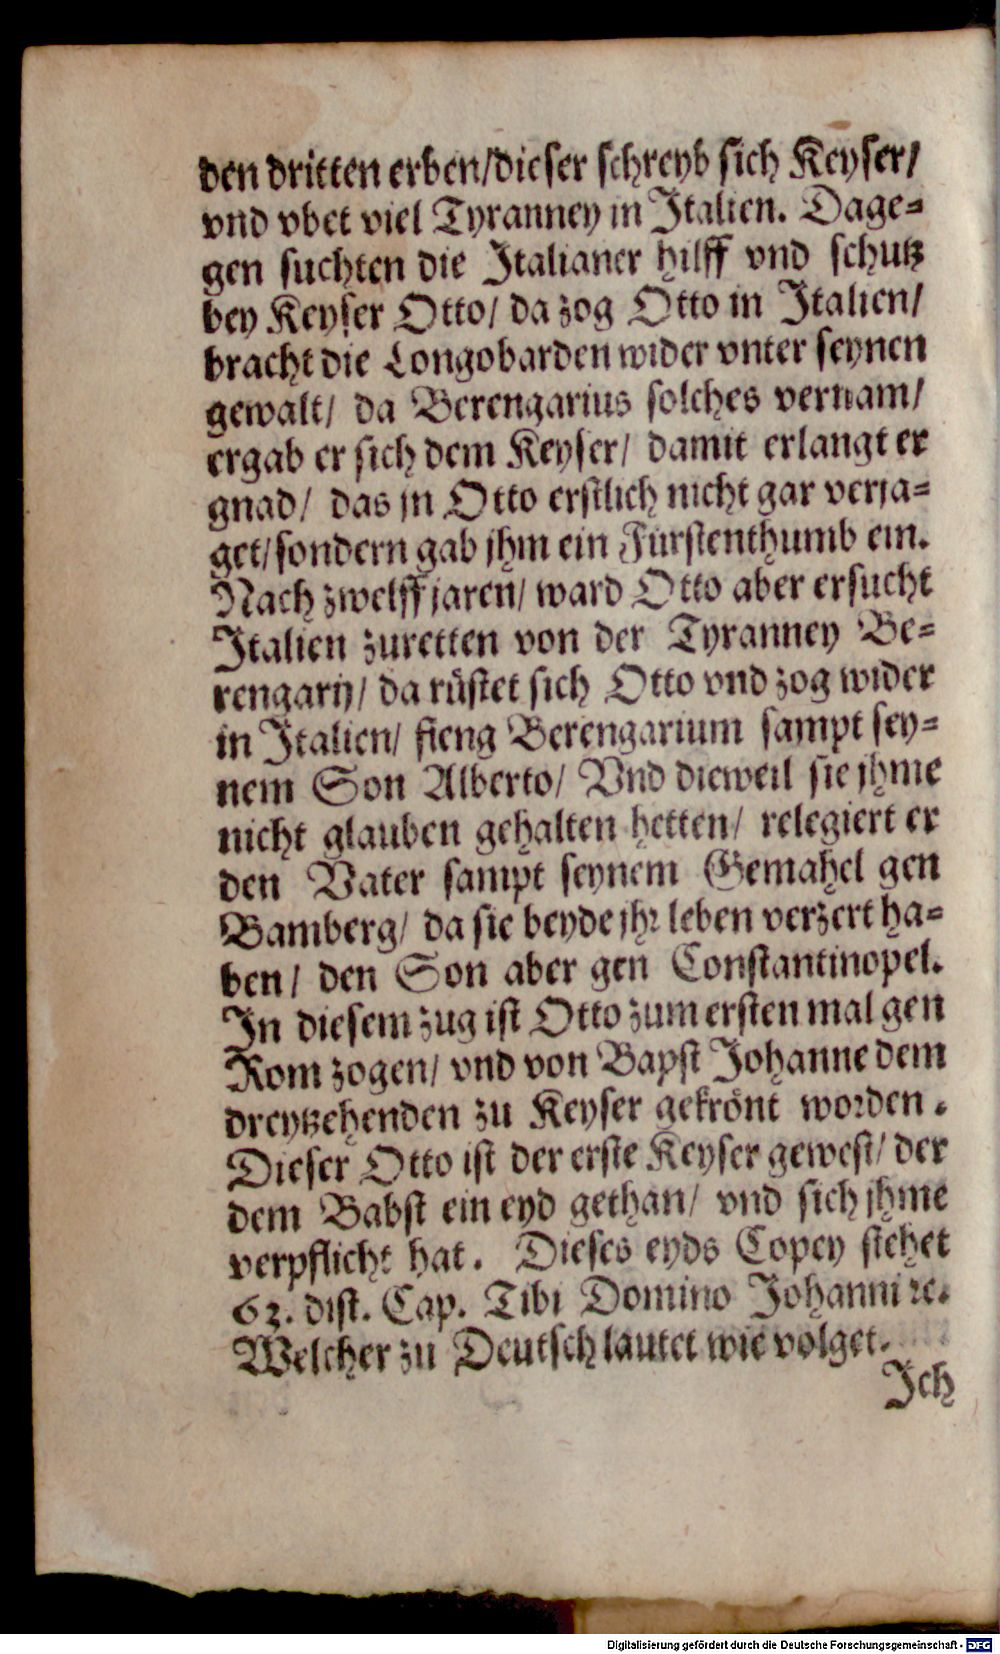 den dritten erben/dieser schreyb sich Keyser/
vnd vbet viel Tyranney in Italien. Dage=
gen suchten die Italianer hilff vnd schutz
bey Keyser Otto/ da zog Otto in Italien/
bracht die Longobarden wider vnter seynen
gewalt/ da Berengarius solches vernam/
ergab er sich dem Keyser/ damit erlangt er
gnad/ das jn Otto erstlich nicht gar verja=
get/sondern gab jhm ein Fürstenthumb ein.
Nach zwelff jaren/ ward Otto aber ersucht
Italien zuretten von der Tyranney Be=
rengarij/ da rüstet sich Otto vnd zog wider
in Italien/ fieng Berengarium sampt sey=
nem Son Alberto/ Vnd dieweil sie jhme
nicht glauben gehalten hetten/ relegiert er
den Vater sampt seynem Gemahel gen
Bamberg/ da sie beyde jhr leben verzert ha=
ben/ den Son aber gen Constantinopel.
In diesem zug ist Otto zum ersten mal gen
Rom zogen/ vnd von Bapst Johanne dem
dreytzehenden zu Keyser gekrönt worden.
Dieser Otto ist der erste Keyser gewest/ der
dem Babst ein eyd gethan/ vnd sich jhme
verpflicht hat. Dieses eyds Copey stehet
63. dist. Cap. Tibi Domino Johanni ꝛc.
Welcher zu Deutsch lautet wie volget.
Ich
Digitalisierung gefördert durch die Deutsche Forschungsgemeinschaft - DFG